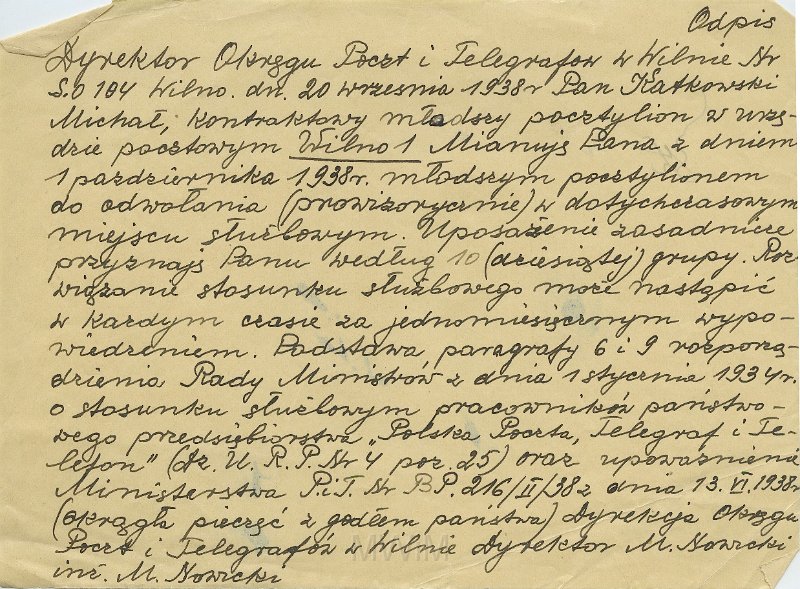 Odpis
Dyrektor Okręgu Poczt i Telegrafow w Wilnie Nr
S.0 104 Wilno. dn. 20 września 1938r Pan Katkowski
Michał, kontraktowy młodszy pocztylion w urzę-
dzie pocztowym Wilno 1 Mianuję Pana z dniem
1 pazdziernika 1938r. młodszym pocztylionem
do odwołania (prowizorycznie) w dotychczasowym
miejscu służbowym. Uposażenie zasadnicze
przyznaję Panu według 10 (dziesiątej) grupy. Roz
wiązanie stosunku służbowego może nastąpić
w każdym czasie za jednomiesięcznym wypo-
wiedzeniem. Podstawa paragrafy 6 i 9 rozporzą-
dzienia Rady Ministrów z dnia 1 stycznia 1934r.
o stosunku służbowym pracowników państwo-
wego przedsiębiorstwa „Polska Poczta, Telegraf i Te-
lefon" (Dz. U. R. P. Nr 4 poz. 25) oraz upoważnienie
Ministerstwa P. i T. Nr BP. 216/II/38 z dnia 13. VI. 1938r
(okrągła pieczęć z godłem państwa) Dyrekcja Okręgu
Poczt i Telegrafów w Wilnie Dyrektor M. Nowicki
inż. M. Nowicki
MWM